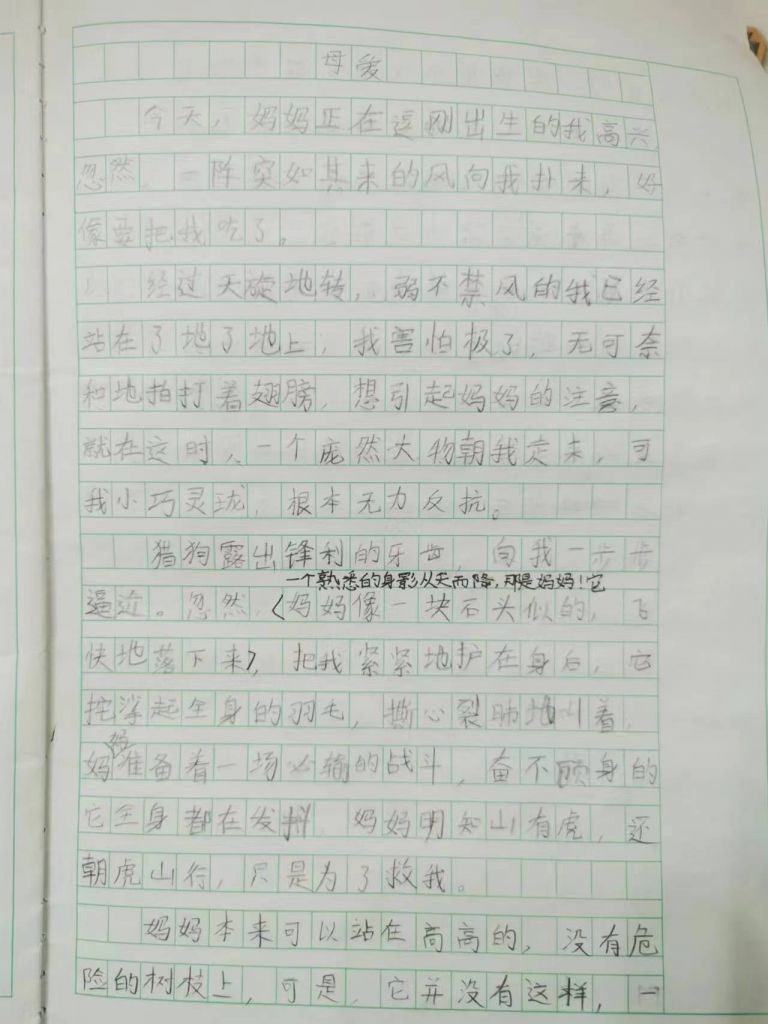 母爱
今天，妈妈正在逗刚出生的我高兴
忽然，一阵突如其来的风向我扑来，好
像要把我吃了。
经过天旋地转，弱不禁风的我已经
站在了地了地上，我害怕极了，无可奈
和地拍打着翅膀，想引起妈妈的注意，
就在这时，一个庞然大物朝我走来，可
我小巧灵珑，根本无力反抗。
猎狗露出锋利的牙齿，向我一步步
一个熟悉的身影从天而降，是妈妈！它
逼近。忽然，（妈妈像一块石头似的，飞
快地落下来），把我紧紧地护在身后，它
挓挲起全身的羽毛，撕心裂肺地叫着，
妈妈准备着一场必输的战斗，奋不顾身的
它全身都在发抖，妈妈明知山有虎，还
朝虎山行，只是为了救我。
妈妈本来可以站在高高的，没有危
险的树枝上，可是，它并没有这样，一